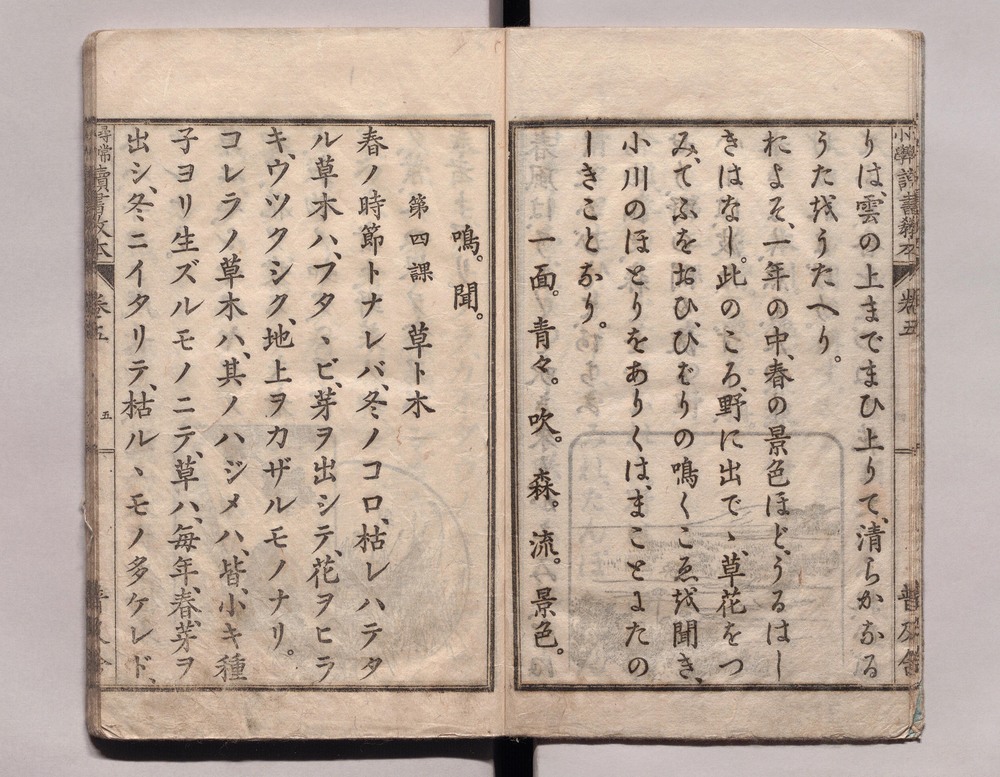 りは、雲の上までまひ上りて、清らかなる
うたをうたへり。
およそ、一年の中、春の景色ほど、うるはし
きはなし。此のころ、野に出でゝ、草花をつ
み、てふをおひ、ひばりの鳴くこゑを聞き、
小川のほとりをありくは、まことにたの
しきことなり。
一面。青々。吹。森。流。景色。
鳴。聞。
第四課 草ト木
春ノ時節トナレバ、冬ノコロ、枯レハテタ
ル草木ハ、フタヽビ、芽ヲ出シテ、花ヲヒラ
キ、ウツクシク、地上ヲカザルモノナリ。
コレラノ草木ハ、其ノハジメハ、皆、小キ種
子ヨリ生ズルモノニテ、草ハ、毎年、春、芽ヲ
出シ、冬ニイタリテ、枯ルヽモノ多ケレド、
尋常讀書敎本
卷五
五